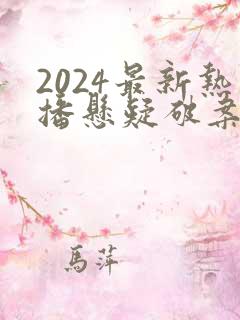 2024最新熱
播懸疑破案
馬萍